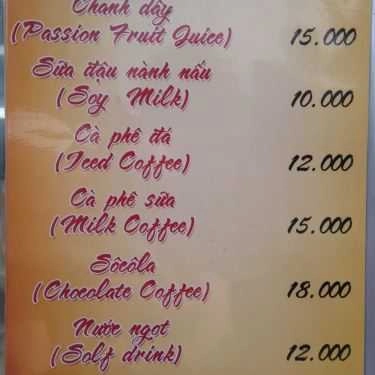 Chanh dây
(Passion Fruit Juice) 15.000
Sữa đậu nành nấu
(Soy Milk) 10.000
Cà phê đá
(Iced Coffee) 12.000
Cà phê sữa
(Milk Coffee) 15.000
Sôcôla
(Chocolate Coffee) 18.000
Nước ngọt
(Solf drink) 12.000